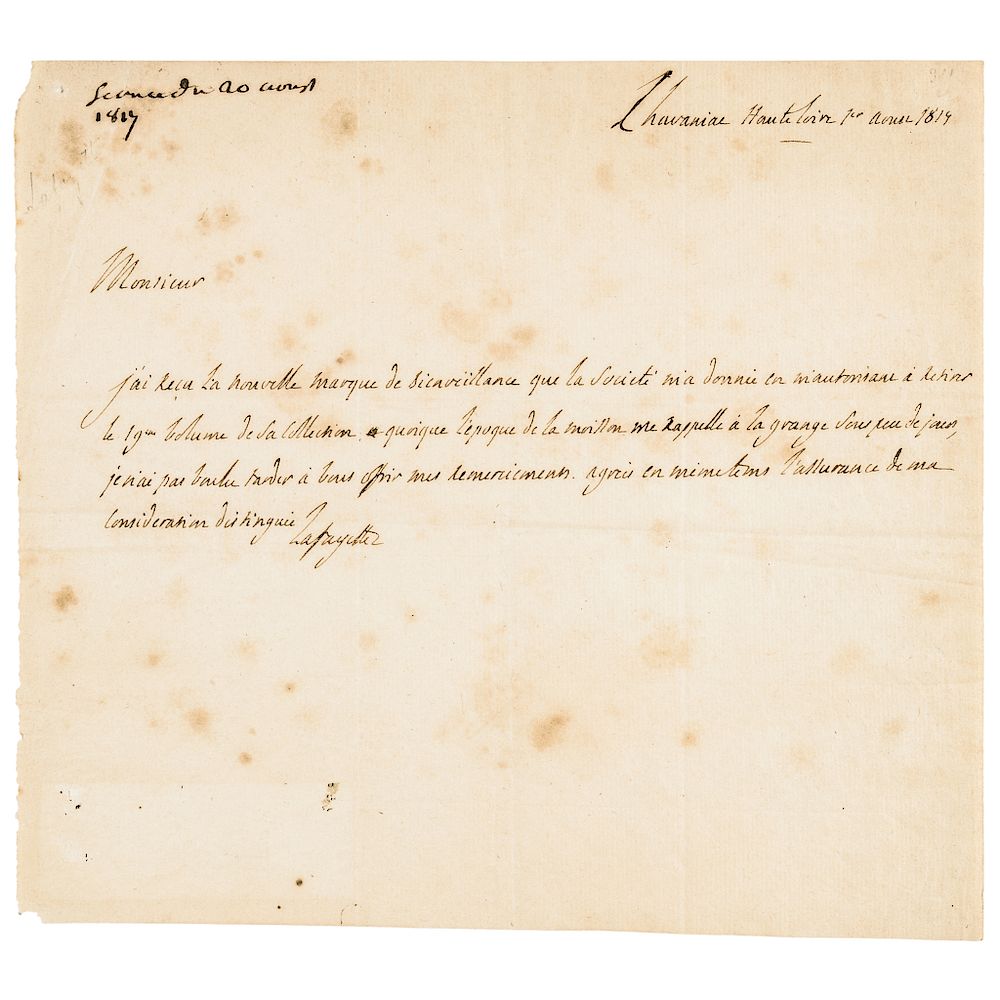 Seance du 20 aoust
1817
Chavaniac Haute Loire 1er Aoust 1817
Monsieur
j'ai reçu la nouvelle marque de bienveillance que la Societé m'a donnée en m'autorisant à retirer
le 19me volume de sa Collection quoique l'époque de la moisson me rappelle à la grange sous peu de jours,
je n'ai pas voulu tarder à vous offrir mes remerciements. agréés en même tems l'assurance de ma
Consideration distinguée
Lafayette